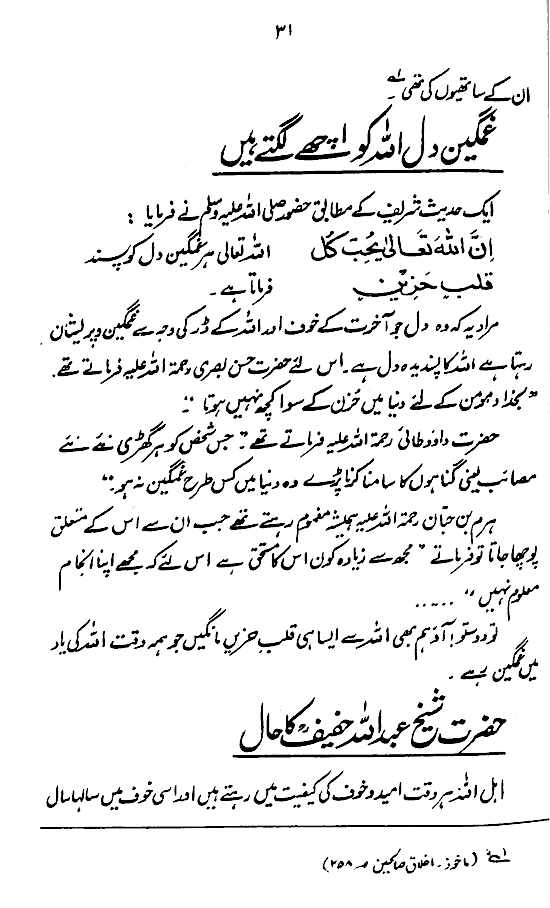 ۳۱
ان کے ساتھیوں کی تھی۔ لہ
غمگین دل اللہ کو اچھے لگتے ہیں
ایک حدیث شریف کے مطابق حضور صلی اللہ علیہ وسلم نے فرمایا :
اِنَّ اللہَ تَعَالیٰ یُحِبُّ کُلَّ اللہ تعالی ہر غمگین دل کو پسند
قَلبٍ حَزِیْنٍ فرماتا ہے۔
مراد یہ کہ وہ دل جو آخرت کے خوف اور اللہ کے ڈر کی وجہ سے غمگین و پریشان
رہتا ہے اللہ کا پسندیدہ دل ہے۔ اس لئے حضرت حسن بصری رحمۃ اللہ علیہ فرماتے تھے۔
"بخدا دمومن کے لئے دنیا میں حُزن کے سوا کچھ نہیں ہوتا"۔
حضرت داؤد طائی رحمۃ اللہ علیہ فرماتے تھے "جس شخص کو ہر گھڑی نئے نئے
مصائب یعنی گناہوں کا سامنا کرنا پڑے وہ دنیا میں کس طرح غمگین نہ ہو۔"
ہرم بن حبان رحمۃ اللہ علیہ ہمیشہ مغموم رہتے تھے جب ان سے اس کے متعلق
پوچھا جاتا تو فرماتے "مجھ سے زیادہ کون اس کا مستحق ہے اس لئے کہ مجھے اپنا انجام
معلوم نہیں" .....
تو دوستو! آؤ ہم بھی اللہ سے ایسا ہی قلب حزیں مانگیں جو ہمہ وقت اللہ کی یاد
میں غمگین رہے۔
حضرت شیخ عبد اللہ خفیفؒ کا حال
اہل اللہ ہر وقت امید و خوف کی کیفیت میں رہتے ہیں اور اسی خوف میں سالہا سال
لہ (ماخوذ۔ اخلاق صالحین صـ ۲۵۸)